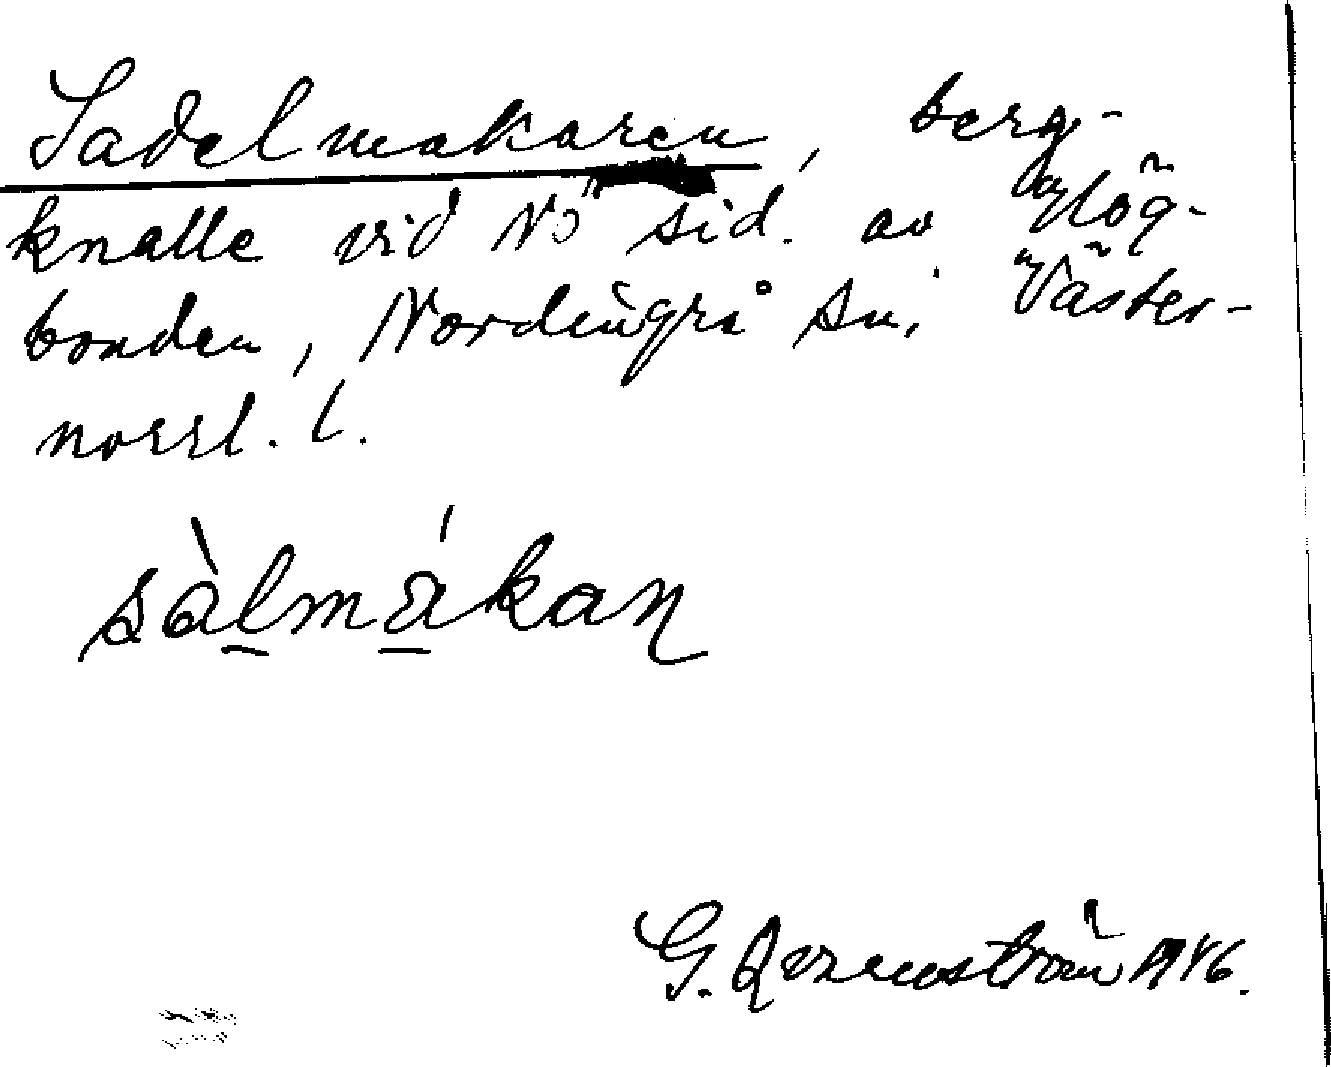 Sadelmakaren, berg-
knalle vid NÖ sid. av Hög-
bonden, Nordingrå sn, Väster-
norrl. l.
sàlmákaɳ
G. Qvarnström 1946.